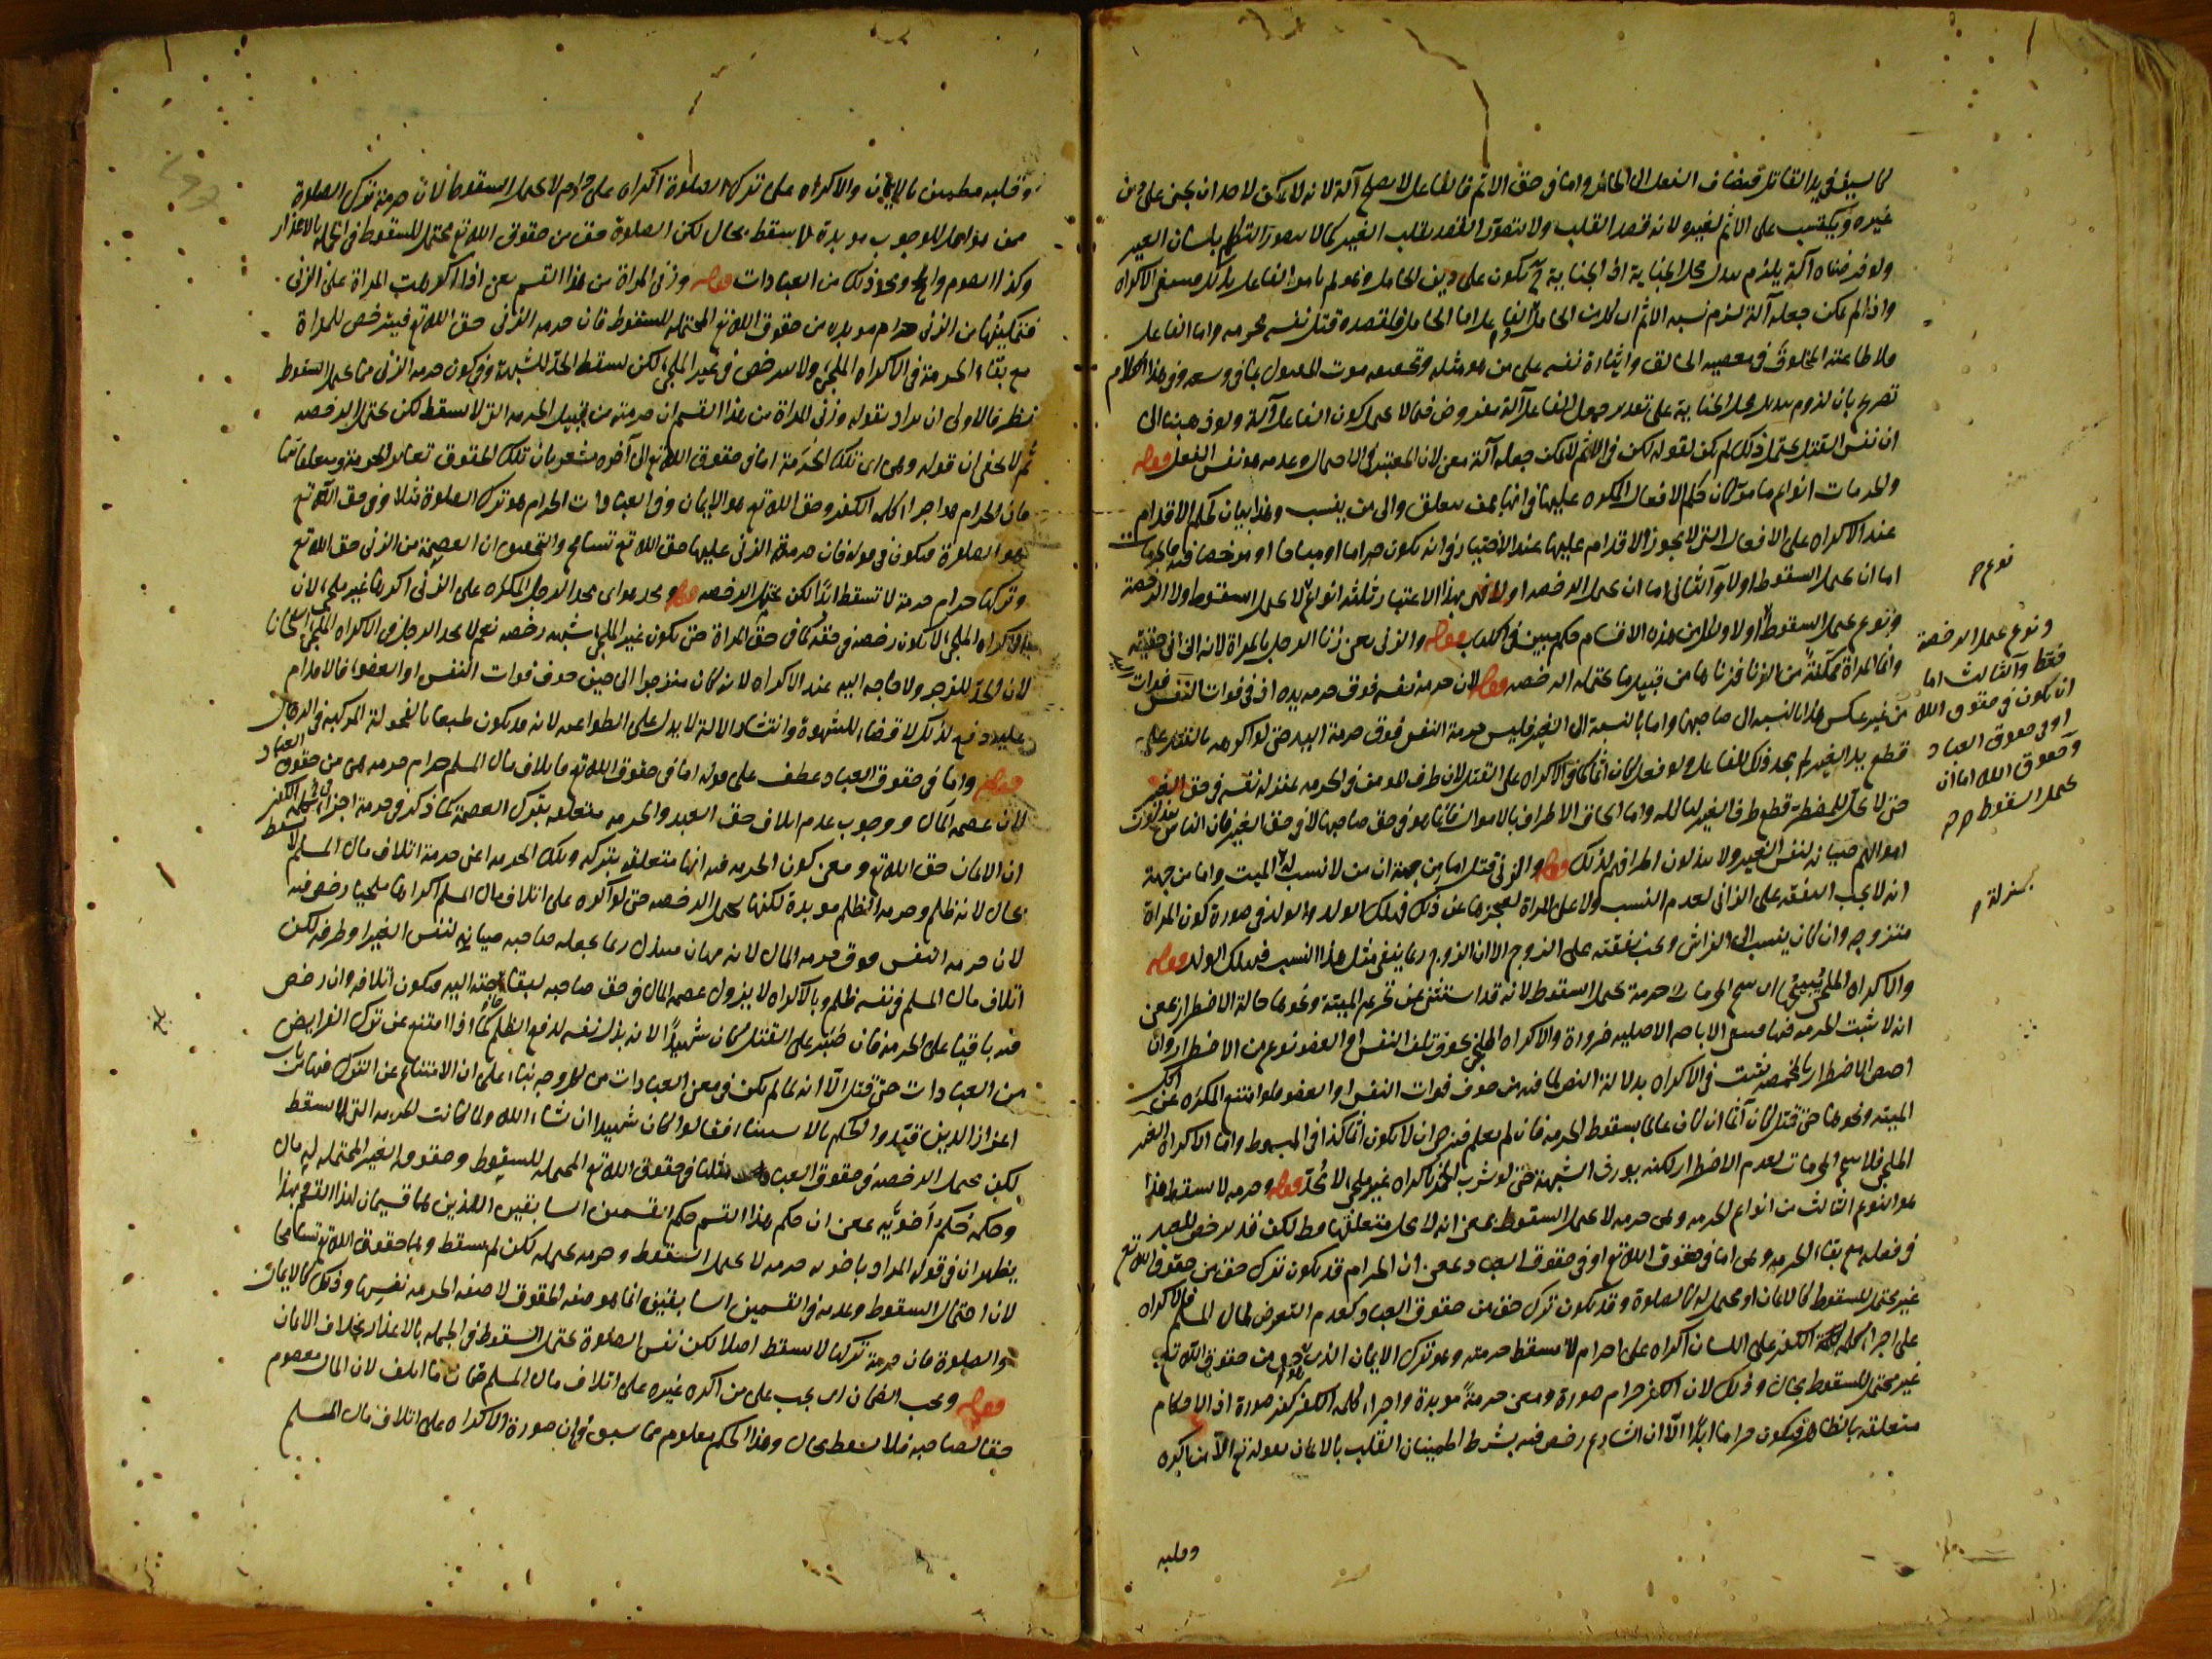 كالسيف في يد القاتل فيضاف الفعل الى الحامل واما في حق الاثم فالفاعل لا يصلح آلة لانه لا يمكن لاحد ان يجني على دين
غيره ويكتسب على الاثم لغيره لانه قصد القلب ولا يتصور القصد بقلب الغير كما لا يتصور التكلم بلسان الغير
ولو فرضناه آلة يلزم تبدل محل الجناية اذ الجناية ح تكون على دين الحامل وهو لم يأمر الفاعل بذلك فينتفي الاكراه
واذا لم يمكن جعله آلة لزم نسبة الاثم الى كل من الحامل والفاعل اما الحامل فلقصده قتل نفس محرمة واما الفاعل
فلاطاعته المخلوق في معصية الخالق وايثاره نفسه على من هو مثله وتحقيقه موت المقتول بما في وسعه وفي هذا الكلام
تصريح بان لزوم تبدل محل الجناية على تقدير جعل الفاعل آلة مفروض فيما لا يحتمل كون الفاعل آلة ولو ذهبنا الى
ان نفس القتل يحتمل ذلك لم يكن لقوله لكن في الاثم لا يمكن جعله آلة معنى لان المعتبر في الاحتمال وعدمه هو نفس الفعل قوله
والحرمات انواع ما مر كان حكم الافعال المكره عليها في انها بمن يتعلق والى من ينسب وهذا بيان لحكم الاقدام
عند الاكراه على الافعال التي لا يجوز الاقدام عليها عند الاختيار في انه يكون حراما او مباحا او مرخصا فيه فالحرمات
اما ان يحتمل السقوط اولا والثاني اما ان يحتمل الرخصة اولا فهي بهذا الاعتبار ثلثة انواع لا يحتمل السقوط ولا الرخصة
ونوع يحتمل السقوط اولا ولكل من هذه الاقسام حكم يبين في الكتاب قوله والزنى يعني زنا الرجل بالمراة لانه الزاني حقيقة
وانما المراة ممكنة من الزنا فزناها من قبيل ما يحتمل الرخصة قوله لان حرمة نفسه فوق حرمة يده اذ في فوات النفس فوات اليد
من غير عكس هذا بالنسبة الى صاحبها واما بالنسبة الى الغير فليس حرمة النفس فوق حرمة اليد حتى لو اكره بالقتل على
قطع يد الغير لم يحل ذلك للفاعل ولو فعل كان آثما كما في الاكراه على القتل لان طرف المؤمن في الحرمة بمنزلة نفسه في حق الغير
حتى لا يحل للمضطر قطع طرف الغير لياكله واما الحاق الاطراف بالاموال فانما هو في حق صاحبها لا في حق الغير فان الناس يبذلون
اموالهم صيانة لنفس الغير ولا يبذلون اطرافهم لذلك قوله والزنى قتل اما من جهة ان من لا نسب له الميت واما من جهة
انه لا يجب النفقة على الزاني لعدم النسب ولا على المراة لعجزها عن ذلك فهلك الولد والولد في صورة كون المراة
متزوجة وان كان ينسب الى الفراش وتجب نفقته على الزوج الا ان الزوج ربما ينفي مثل هذا النسب فيهلك الولد قوله
والاكراه الملجئ يبيحها اي يبيح الحرمات حرمة تحتمل السقوط لانه قد استثنى عن تحريم الميتة ونحوها حالة الاضطرار بمعنى
انه لا تثبت الحرمة فيها فتبقى الاباحة الاصلية ضرورة والاكراه الملجئ بخوف تلف النفس او العضو نوع من الاضطرار وان
اختص الاضطرار بالمخمصة تثبت في الاكراه بدلالة النص لما فيه من خوف فوات النفس او العضو فلو امتنع المكره عن اكل
الميتة ونحوها حتى قتل كان آثما ان كان عالما بسقوط الحرمة فان لم يعلم فيرجى ان لا يكون آثما كذا في المبسوط واما الاكراه الغير
الملجئ فلا يبيح الحرمات لعدم الاضطرار لكنه يورث الشبهة حتى لو شرب الخمر باكراه غير ملجئ لا يحد قوله وحرمة لا تسقط هذا
هو النوع الثالث من انواع الحرمة وهي حرمة لا تحتمل السقوط بمعنى انه لا يحل متعلقها قط لكن قد يرخص للعبد
في فعله مع بقاء الحرمة وهي اما في حقوق الله تع او في حقوق العباد بمعنى ان الحرام قد يكون ترك حق من حقوق الله تع
غير محتمل للسقوط كالايمان او محتمل له كالصلوة وقد يكون ترك حق من حقوق العباد كعدم التعرض لمال المسلم فالاكراه
على اجراء كلمة الكفر على اللسان اكراه على حرام لا تسقط حرمته وهو ترك الايمان الذي هو من حقوق الله تع
غير محتمل للسقوط بحال وذلك لان الكفر حرام صورة ومعنى حرمة مؤبدة واجراء كلمة الكفر كفر صورة اذ الاحكام
متعلقة بالظاهر فيكون حراما ابدا الا ان الشارع رخص فيه بشرط اطمينان القلب بالايمان لقوله تع الا من اكره
وقلبه
نوع ص
ونوع يحتمل الرخصة
فقط والثالث اما
ان يكون في حقوق الله
او في حقوق العباد
وحقوق الله اما ان
يحتمل السقوط ص
بمنزلة ص
وقلبه مطمئن بالايمان والاكراه على ترك الصلوة اكراه على حرام لا يحتمل السقوط لان حرمة ترك الصلوة
ممن هو اهل للوجوب مؤبدة لا يسقط بحال لكن الصلوة حق من حقوق الله تع محتمل للسقوط في الجملة بالاعذار
وكذا الصوم والحج ونحو ذلك من العبادات قوله وزنى المراة من هذا القسم يعني اذا اكرهت المراة على الزنى
فتمكينها من الزنى حرام مؤبد من حقوق الله تع المحتملة للسقوط فان حرمة الزنى حق الله تع فيترخص للمراة
مع بقاء الحرمة في الاكراه الملجئ ولا يرخص في غير الملجئ لكن يسقط الحد للشبهة وفي كون حرمة الزنى مما يحتمل السقوط
نظر فالاولى ان يراد بقوله وزنى المراة من هذا القسم ان حرمته من قبيل الحرمة التي لا تسقط لكن تحتمل الرخصة
ثم لا يخفى ان قوله وهي اي تلك الحرمة اما في حقوق الله تع الى آخره مشعر بان تلك الحقوق تغاير الحرمة ومتعلقاتها
فان الحرام هو اجراء كلمة الكفر وحق الله تع هو الايمان وفي العبادات الحرام هو ترك الصلوة مثلا وحق الله تع
هو الصلوة فيكون في قوله فان حرمة الزنى عليها حق الله تع تسامح والتحقيق ان العصمة من الزنى حق الله تع
وتركها حرام حرمة لا تسقط ابدا لكن تحتمل الرخصة قوله ويحد هو اي يحد الرجل المكره على الزنى اكراها غير ملجئ لان
الاكراه الملجئ لا يكون رخصة في حقه كما في حق المراة حتى يكون غير الملجئ شبهة رخصة نعم لا يحد الرجل في الاكراه الملجئ استحسانا
لان الحد للزجر ولا حاجة اليه عند الاكراه لانه كان منزجرا الى حين خوف فوات النفس او العضو فالاقدام
عليه دفع لذلك لا قضاء للشهوة وانتشار الآلة لا يدل على الطواعية لانه قد يكون طبعا بالفحولة المركبة في الرجال
قوله واما في حقوق العباد عطف على قوله اما في حقوق الله تع فاتلاف مال المسلم حرام حرمة هي من حقوق العباد
لان عصمة المال ووجوب عدم اتلافه حق العبد والحرمة متعلقة بترك العصمة كما ذكر في حرمة اجراء كلمة الكفر
ان الايمان حق الله تع ومعنى كون الحرمة فيه انها متعلقة بتركه وتلك الحرمة اعني حرمة اتلاف مال المسلم لا تسقط
بحال لانه ظلم وحرمة الظلم مؤبدة لكنها تحتمل الرخصة حتى لو اكره على اتلاف مال المسلم اكراها ملجيا رخص فيه
لان حرمة النفس فوق حرمة المال لانه مهان مبتذل ربما يجعله صاحبه صيانة لنفس الغير او طرفه لكن
اتلاف مال المسلم في نفسه ظلم وبالاكراه لا يزول عصمة المال في حق صاحبه لبقاء حاجته اليه فيكون اتلافه وان رخص
فيه باقيا على الحرمة فان صبر على القتل كان شهيدا لانه بذل نفسه لدفع الظلم كما اذا امتنع عن ترك الفرايض
من العبادات حتى قتل الا انه لما لم يكن في معنى العبادات من كل وجه بناء على ان الامتناع عن الترك فيها من باب
اعزاز الدين قيدوا الحكم بالاستثناء فقالوا كان شهيدا ان شاء الله ولما كانت الحرمة التي لا تسقط
لكن تحتمل الرخصة في حقوق العباد مثلها في حقوق الله تع المحتملة للسقوط وحقوقه الغير المحتملة له قال
وحكمه حكم اخويه بمعنى ان حكم هذا القسم حكم القسمين السابقين اللذين هما قسيمان لهذا القسم وبهذا
يظهر ان في قوله المراد باخويه حرمة لا تحتمل السقوط وحرمة تحتمله لكن لم يسقط وهما حقوق الله تع تسامحا
لان احتمال السقوط وعدمه في القسمين السابقين انما هو صفة الحقوق لا صفة الحرمة نفسها وذلك كالايمان
والصلوة فان حرمة تركهما لا تسقط اصلا لكن نفس الصلوة يحتمل السقوط في الجملة بالاعذار بخلاف الايمان
قوله ويجب الضمان اي يجب على من اكره غيره على اتلاف مال المسلم ضمان ما اتلف لان المال معصوم
حقا لصاحبه فلا يسقط بحال وهذا الحكم معلوم مما سبق في ان صورة الاكراه على اتلاف مال المسلم